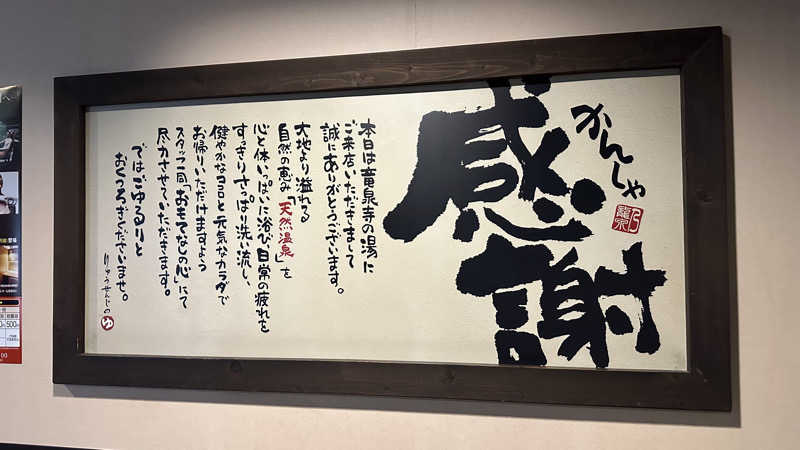 感謝
かんしゃ
龍泉
乃
本日は竜泉寺の湯に
ご来店いただきまして
誠にありがとうございます。
大地より溢れる
自然の恵み「天然温泉」を
心と体いっぱいに浴び日常の疲れを
すっきりさっぱり洗い流し、
健やかなココロと元気なカラダで
お帰りいただけますよう
スタッフ一同「おもてなしの心」にて
尽力させていただきます。
ではごゆるりと
おくつろぎくださいませ。
りゅうせんじの
ゆ